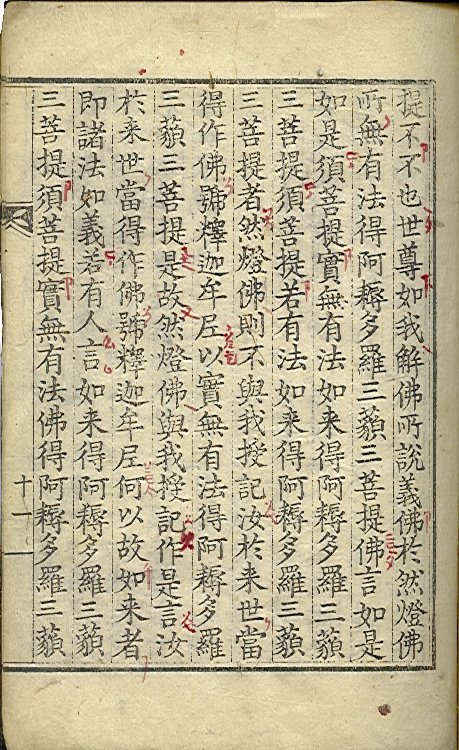 提不不也世尊如我解佛所說義佛於然燈佛
所無有法得阿耨多羅三藐三菩提佛言如是
如是須菩提實無有法如来得阿耨多羅三藐
三菩提須菩提若有法如来得阿耨多羅三藐
三菩提者然燈佛則不與我授記汝於来世當
得作佛號釋迦牟尼以實無有法得阿耨多羅
三藐三菩提是故然燈佛與我授記作是言汝
於来世當得作佛號釋迦牟尼何以故如来者
即諸法如義若有人言如来得阿耨多羅三藐
三菩提須菩提實無有法佛得阿耨多羅三藐
十一